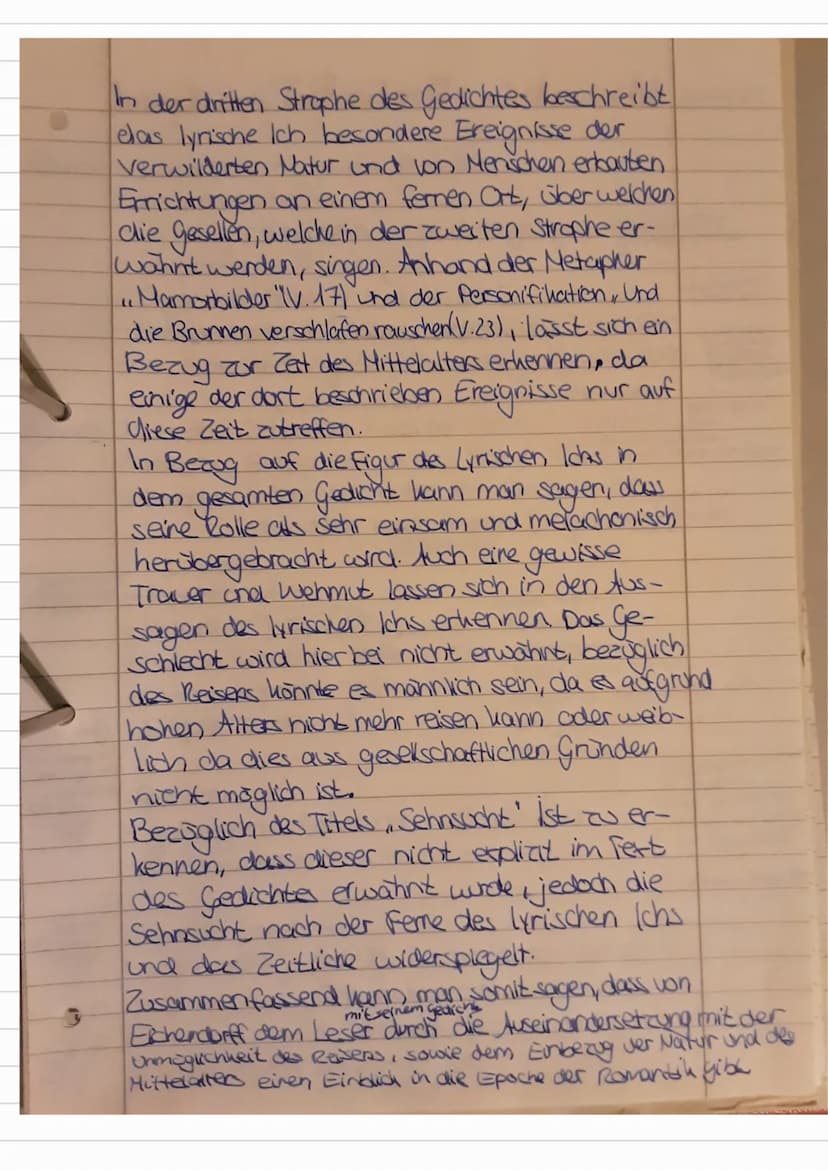 In der dritten Strophe des Gedichtes beschreibt
das lyrische Ich besondere Ereignisse der
verwilderten Natur und von Menschen erbauten
Errichtungen an einem fernen Ort, über welchen
die Gesellen, welche in der zweiten Strophe er-
wähnt werden, singen. Anhand der Metapher
„Mamorbilder" (V. 17) und der Personifikation „Und
die Brunnen verschlafen rauschen (V.23), lässt sich ein
Bezug zur Zeit des Mittelalters erkennen, da
einige der dort beschrieben Ereignisse nur auf
diese Zeit zutreffen.
In Bezug auf die Figur des Lyrischen Ichs in
dem gesamten Gedicht kann man sagen, dass
seine Rolle als sehr einsam und melachonisch
herübergebracht wird. Auch eine gewisse
Trauer und Wehmut lassen sich in den Aus-
sagen des lyrischen Ichs erkennen. Das Ge-
schlecht wird hierbei nicht erwähnt, bezüglich
des Reisens könnte es männlich sein, da es aufgrund
hohen Alters nicht mehr reisen kann oder weib-
lich da dies aus gesellschaftlichen Gründen
nicht möglich ist.
Bezüglich des Titels „Sehnsucht' ist zu er-
kennen, dass dieser nicht explizit im Text
des Gedichtes erwähnt wurde, jedoch die
Sehnsucht nach der Ferne des lyrischen Ichs
und das Zeitliche widerspiegelt.
Zusammenfassend kann man somit sagen, dass von
mit seinem Gedicht
Eichendorff dem Leser durch die Auseinandersetzung mit der
Unmöglichkeit des Reisens, sowie dem Einbezug der Natur und des
Mittelalters einen Einblick in die Epoche der Romantik gibt